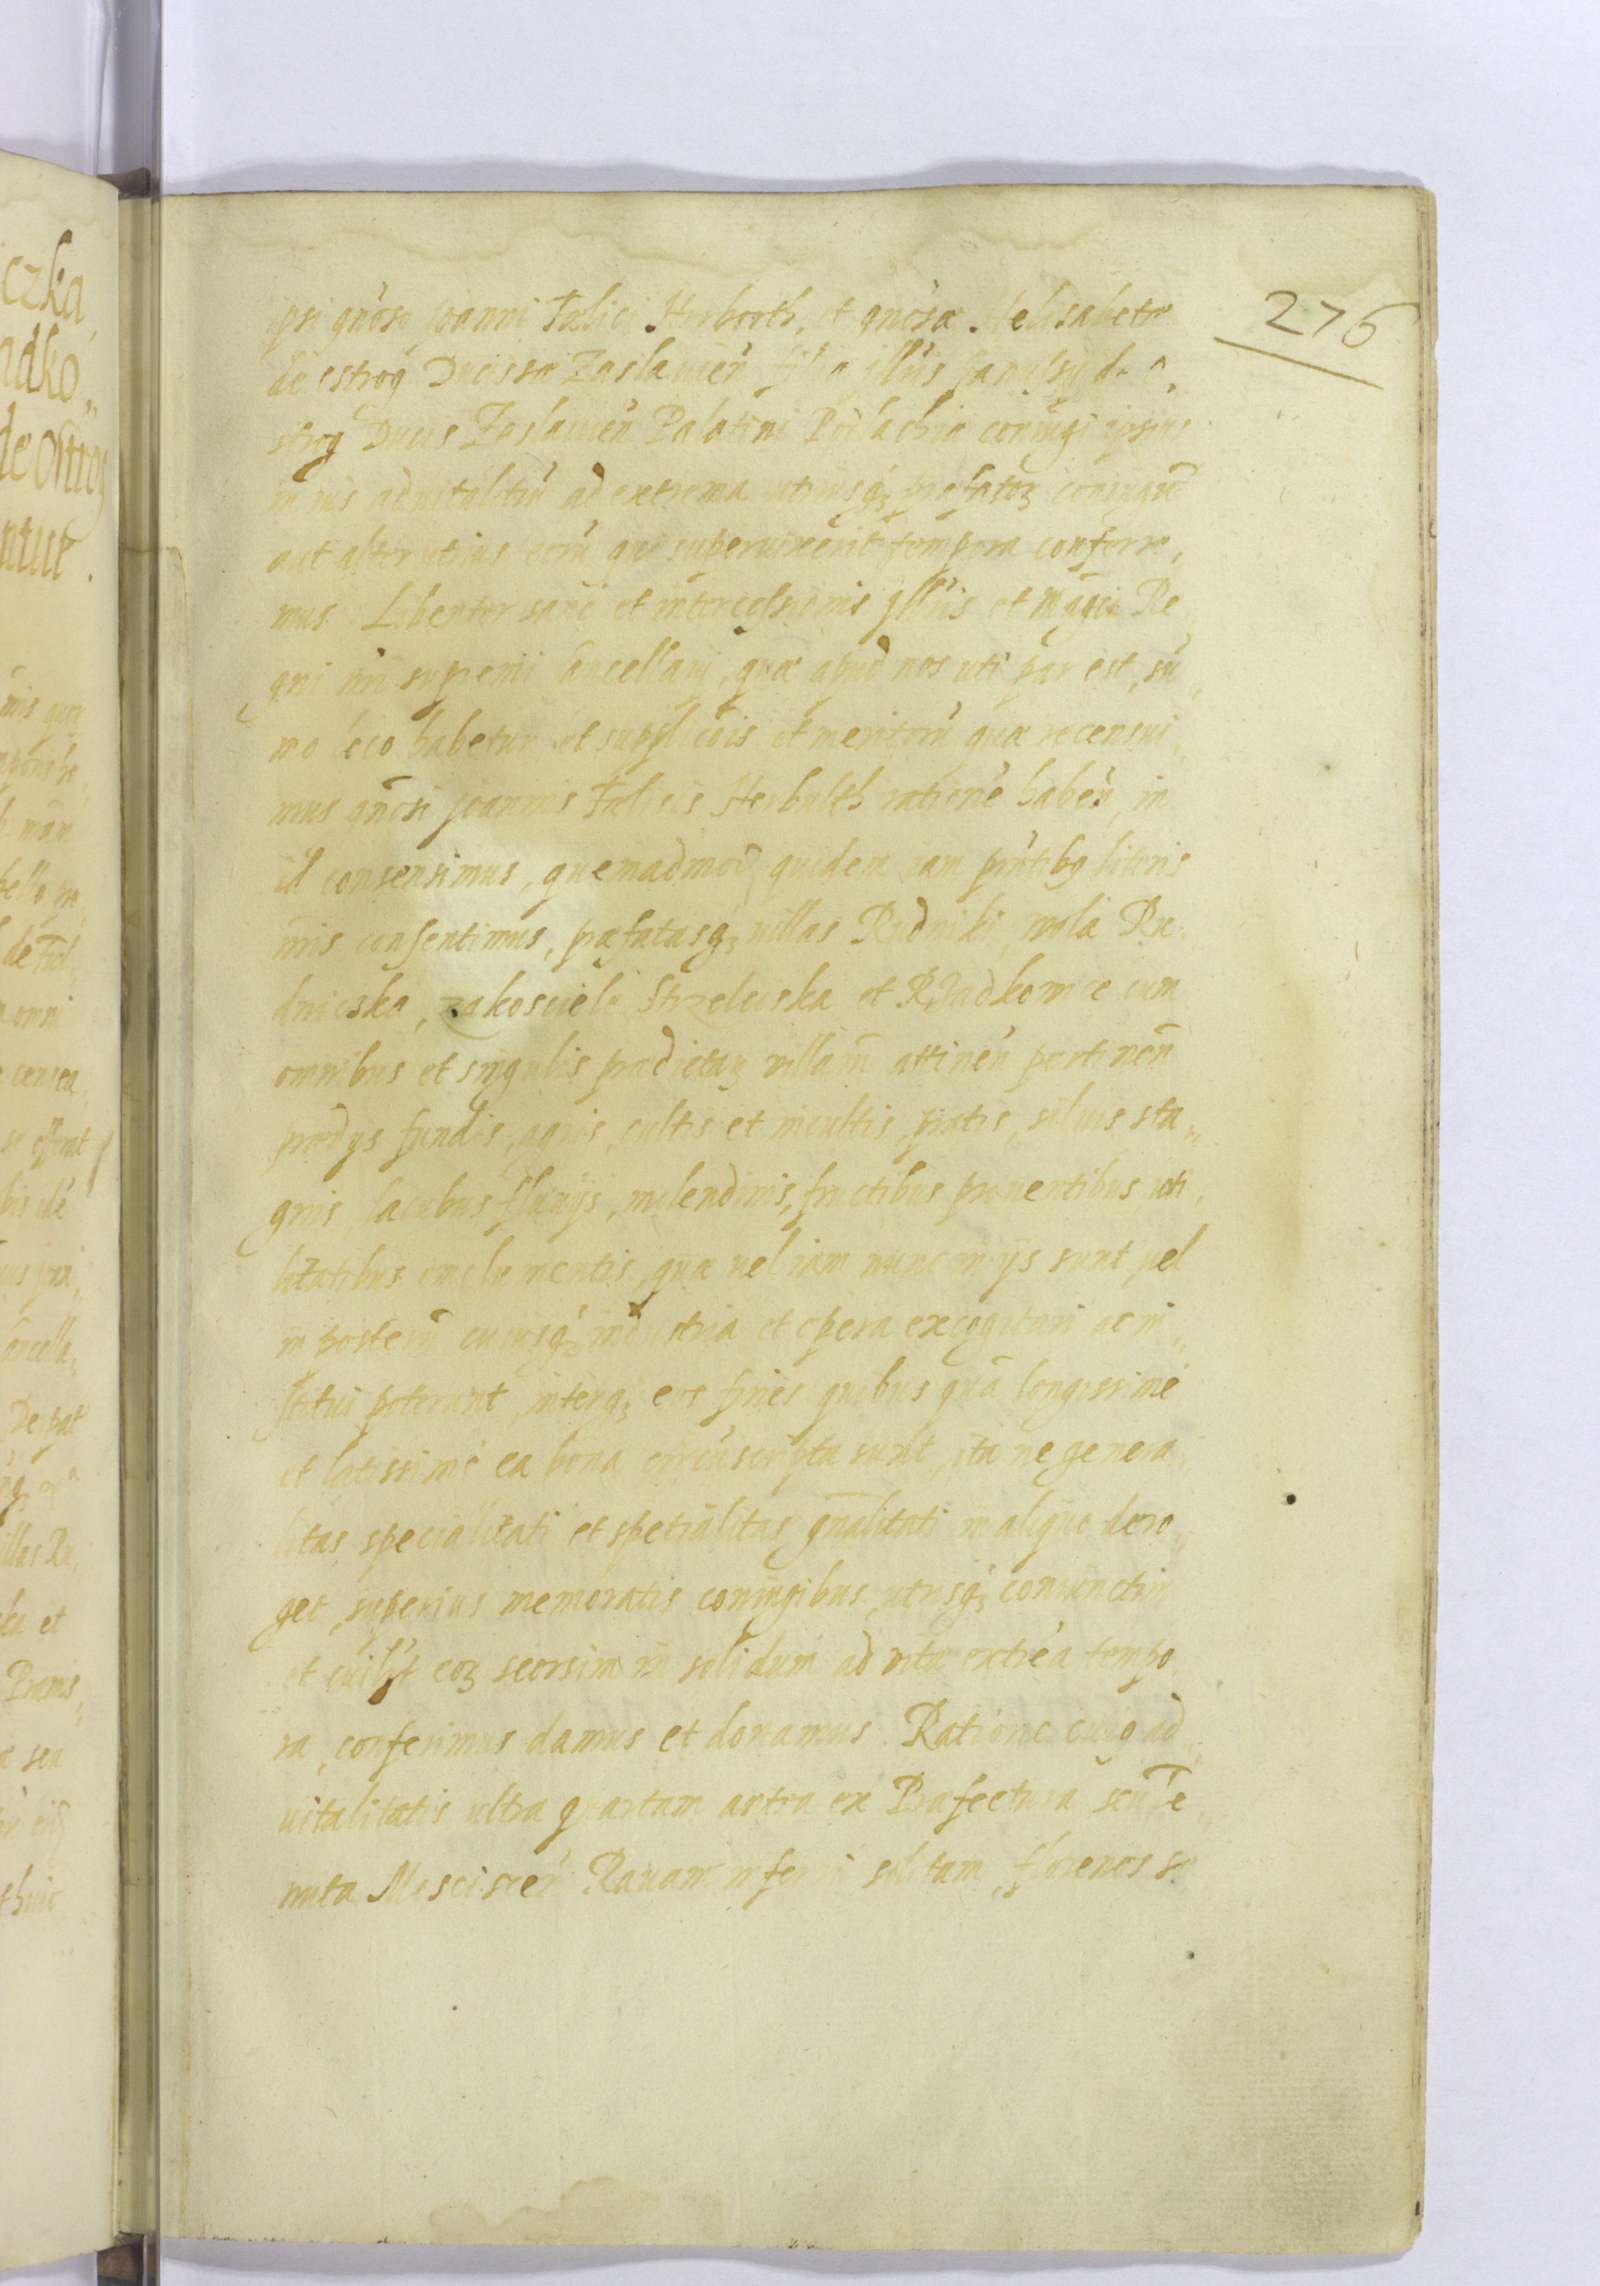 276
ipsi gnōso Joanni Fælici Herborth, et gnōsæ Helisabetæ
de ostrog Ducissæ Zaslauien̄ filiæ illūis Janussy de o„
strog Ducis Zaslauien̄ Palatini Podlachiæ coniugi ipsius
in ius aduitalitiū ad extrema utriusqʒ præfatoꝝ coniugū
aut alterutrius eorū qui superuixerit tempora conferre„
mus Libenter sane et intercessionis illūis et Magci Re„
gni nri supremi Cancellarij, quæ apud nos uti par est, sū„
mo loco habetur et supplicōis et meritorū quæ recensui„
mus gnōsi Joannis Fælicis Herbulth rationē haben̄, in
id consensimus, quemadmodū quidem iam pn̄tibꝯ literis
nris consentimus, præfatasqʒ villas Rudniki, wola Ru„
dniczka, zakosciele Strzelciska et Rządkowice cum
omnibus et singulis prædictaꝝ villarū attinen̄ pertinen̄
prædys fundis, agris, cultis et incultis, pratis, siluis sta„
gnis, lacubus fluuijs, molendinis, fructibus prouentibus, uti„
litatibus emolumentis, quæ uel iam nunc in ijs sunt, uel
in posterū cuiusqʒ industria et opera excogitari ac in„
stitui poterunt, interqʒ eos fines quibus quā longissime
et latissime ea bona circūscripta sunt, ita ne genera„
litas specialitati et spetialitas gn̄alitati in aliquo dero„
get, superius memoratis coniugibus, utrisqʒ coniunctim
et cuilꝫt eoꝝ seorsim in solidum ad vitæ extrēa tempo„
ra, conferimus damus et donamus. Ratione cuiꝯ ad„
uitalitatis ultra quartam antea ex Præfectura seu Te„
nuta Mosciscen̄ Rauam inferri solitam, florenos se